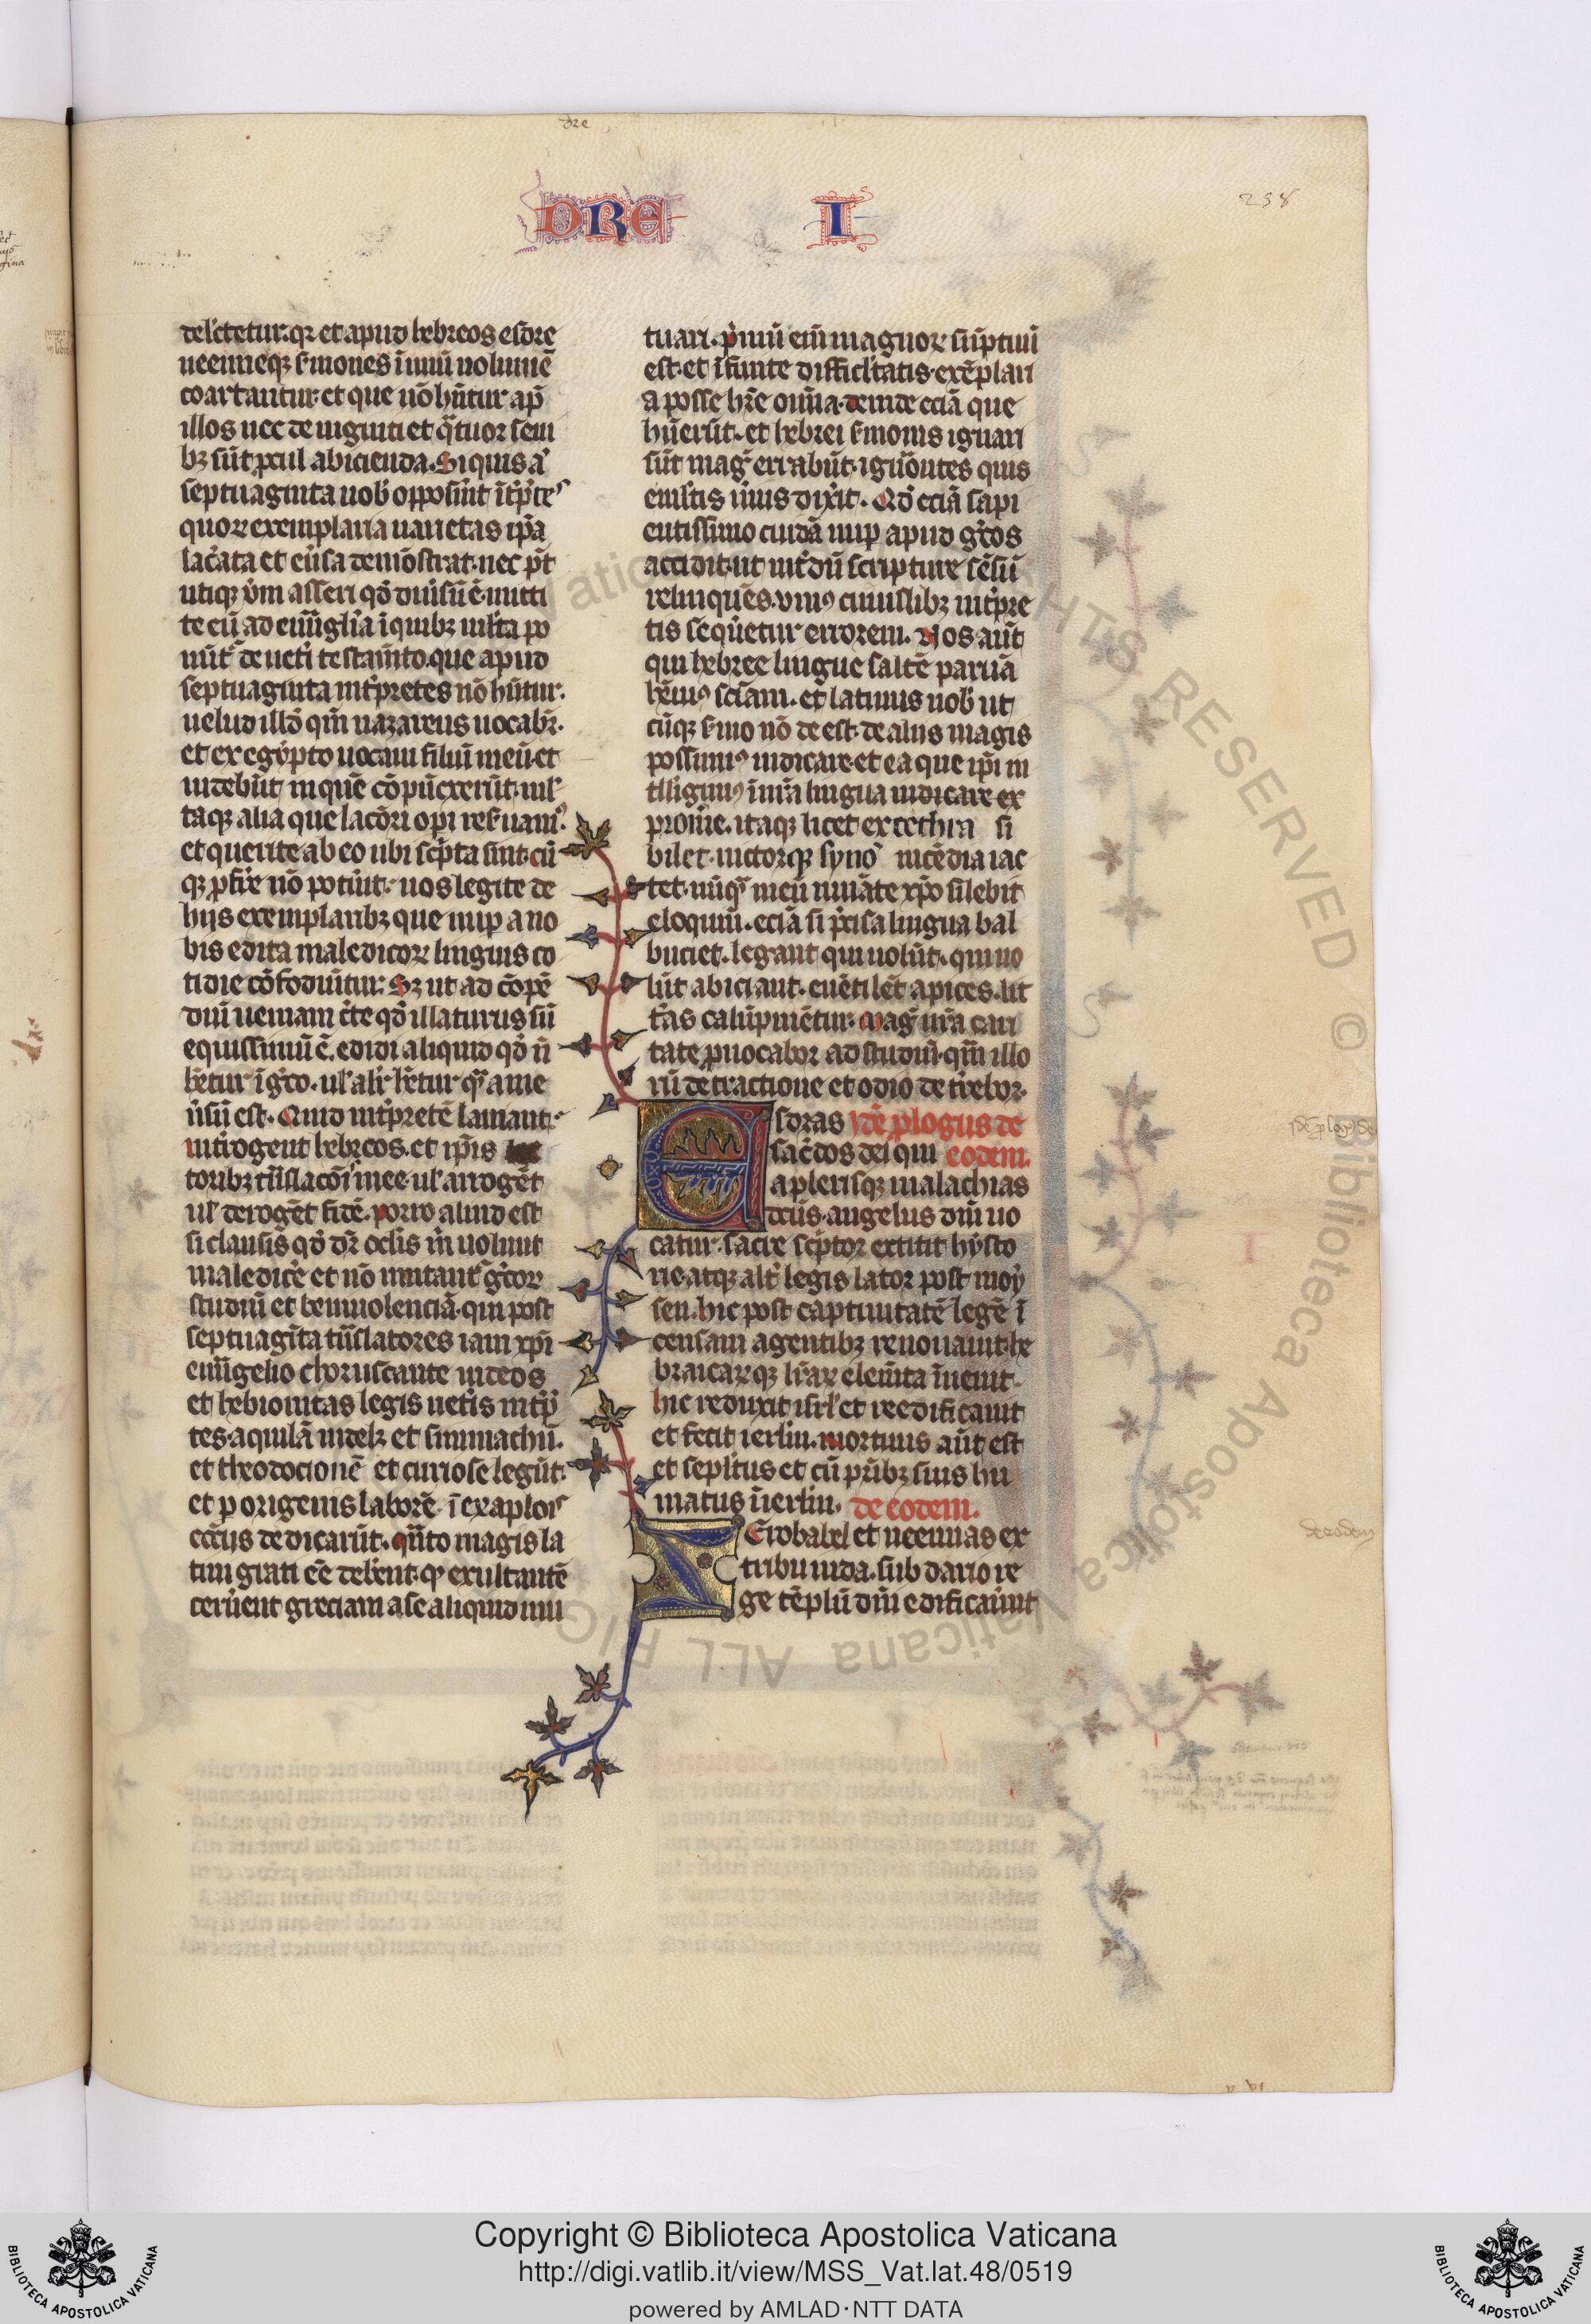 dre
DRE I
258
delectetur. qr et apud hebreos esdre
neemieqz s̓mones ī unū uolumē
coartantur. et que nō hn̄tur ap̄
illos nec de uiginti et qͣtuor seni
bz sūt ꝓcul abicienda. Si quis aͬ
septuaginta uob̓ opposūit īt̓p̄tes
quoꝝ exemplaria uarietas ip̄a
lac̓ata et eūsa demōstrat. nec p̄t
utiqz ūm asseri qd̓ diuisū ē. mitti
te eū ad euūglīa ī quibz ml̓ta po
nūtͬ de uet̓i testam̄to. que apud
septuaginta int̓pretes nō hn̄tur.
uelud illd̓ qm̄ nazareus uocabr̄.
et ex egypto uocaui filiū meū. et
uidebūt in quē cōpūxerūt. ml̓
taqz alia que lacōri opi res̓uamꝰ.
et querite ab eo ubi sc̓pta sint. cū
qz ꝓfr̓e nō potūit. uos legite de
hijs exemplaribz que nup a no
bis edita maledicoꝝ linguis co
tidie cōfodiūtur. Sz ut ad cōpē
diū ueniam c̓te qd̓ illaturus sū
equissimū ē. edidi aliquid qd̓ n̄
hētur ī gͬco. ul̓ alit̓ hētur qͣ a me
ūsū est. Quid int̓pretē laniant.
int̓rogent hebreos. et ip̄is
toribz trāslacōī mee. ul̓ arrogēt
ul̓ derogēt fidē. porro aliud est
si clausis qd̓ dr̄ oc̓lis m̄ uolunt
maledic̓e et nō imitantͬ gͬcoꝝ
studiū et beniuolenciā. qui post
septuagīta trāslatores iam xp̄i
euūgelio choruscante iudeos
et hebionitas legis uet̓is int̓p̄
tes. aquilā uidelz et simmachū.
et theodocionē et curiose legūt.
et p origenis laborē ī exaploīs
ecc̄ijs dedicarūt. qn̄to magis la
tini grati eē deb̓ent. qͥ exultantē
cerūent greciam a se aliquid mu
tuari. p̓mū eīm magnoꝝ sūptuū
est. et īfinite difficl̓tatis. exēplari
a posse hr̄e omīa. deinde eciā que
hūerūt. et hebrei s̓monis ignari
sūt mag̓ errabūt. ignōntes quis
e ml̓tis ūius dixit. Qd̓ eciā sapi
entissimo cuidā nup apud gͬcos
accidit. ut int̓dū scripture sēsū
relinquēs. vniꝰ cuiuslibz int̓pre
tis seqūetur errorem. Nos aūt
qui hebree lingue saltē paruā
hēmꝰ sciām. et latinus nob̓ ut
cūqz s̓mo nō deest. de alijs magis
possumꝰ iudicare. et ea que ip̄i in
tlligimꝰ ī nr̄a lingua iudicare ex
prom̓e. itaqz licet excethra si
bilet. uictorqz syno incēdia iac
tet. nūqͣ meū iuuāte xp̄o silebit
eloquiū. eciā si p̓cisa lingua bal
buciet. legant qui uolūt. qui no
lūt abiciant. euētilēt apices. lit
t̓as calūpniētur. Mag̓ ur̄a cari
tate ꝓuocabor ad studiū. qm̄ illo
rū detractione et odio det̓rebor.
Esdras Idē ꝓlogus de
sac̓dos dei qui eodem.
a plerisqz malachias
dc̄us. angelus dm̄ uo
catur. sacre sc̓ptor extitit hysto
rie. atqz alt̓ legis lator post moy
sen. hic post captiuitatē legē ī
censam a gentibz renouauit. he
braicaꝝqz lr̄aꝝ elem̄ta īuenit.
hic reduxit isrl̓ et reedificauit
et fecit ierl̓m. mortuus aūt est
et sepl̓tus et cū pr̄ibz suis hu
matus ī ierl̓m. de eodem.
Zerobabel et neemias ex
tribu iuda. sub dario re
ge tēplū dm̄ edificaūnt
Idē plog̓ de
de eodem
Copyright © Biblioteca Apostolica Vaticana
http://digi.vatlib.it/view/MSS_Vat.lat.48/0519
powered by AMLAD·NTT DATA
BIBLIOTECA APOSTOLICA VATICANA
BIBLIOTECA APOSTOLICA VATICANA
Biblioteca Apostolica Vaticana ALL RIGHTS RESERVED ©